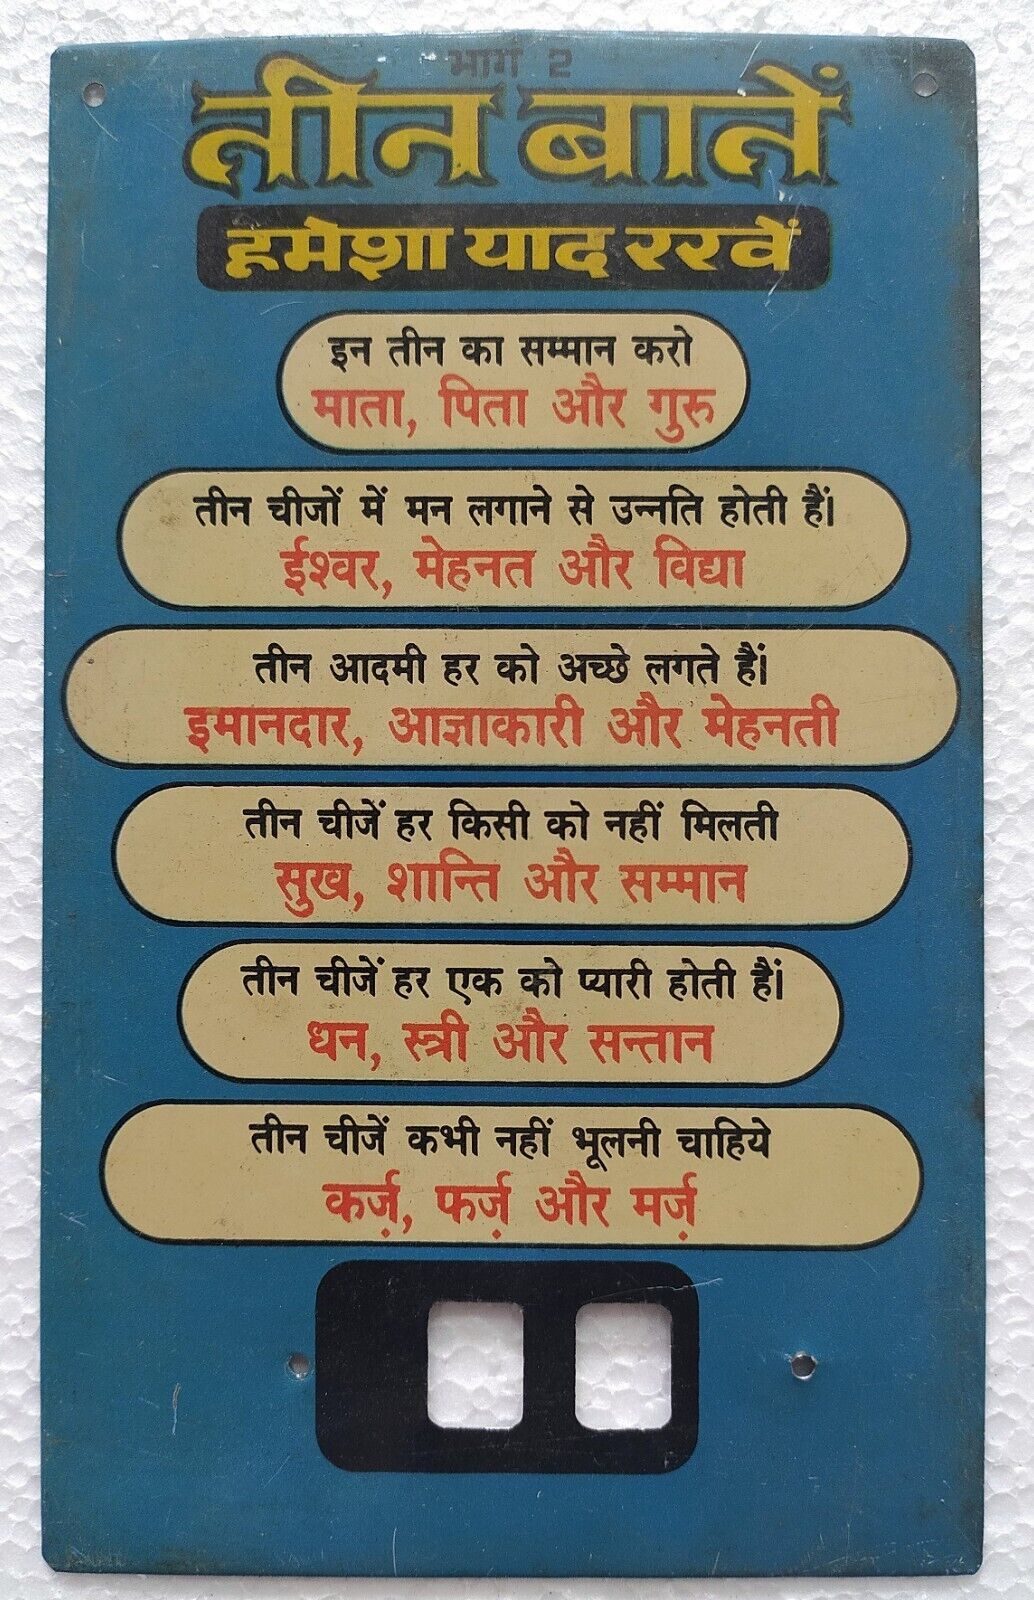 भाग 2
तीन बातें
हमेशा याद रखें
इन तीन का सम्मान करो
माता, पिता और गुरु
तीन चीजों में मन लगाने से उन्नति होती हैं।
ईश्वर, मेहनत और विद्या
तीन आदमी हर को अच्छे लगते हैं।
इमानदार, आज्ञाकारी और मेहनती
तीन चीजें हर किसी को नहीं मिलती
सुख, शान्ति और सम्मान
तीन चीजें हर एक को प्यारी होती हैं।
धन, स्त्री और सन्तान
तीन चीजें कभी नहीं भूलनी चाहिये
कर्ज़, फर्ज़ और मर्ज़